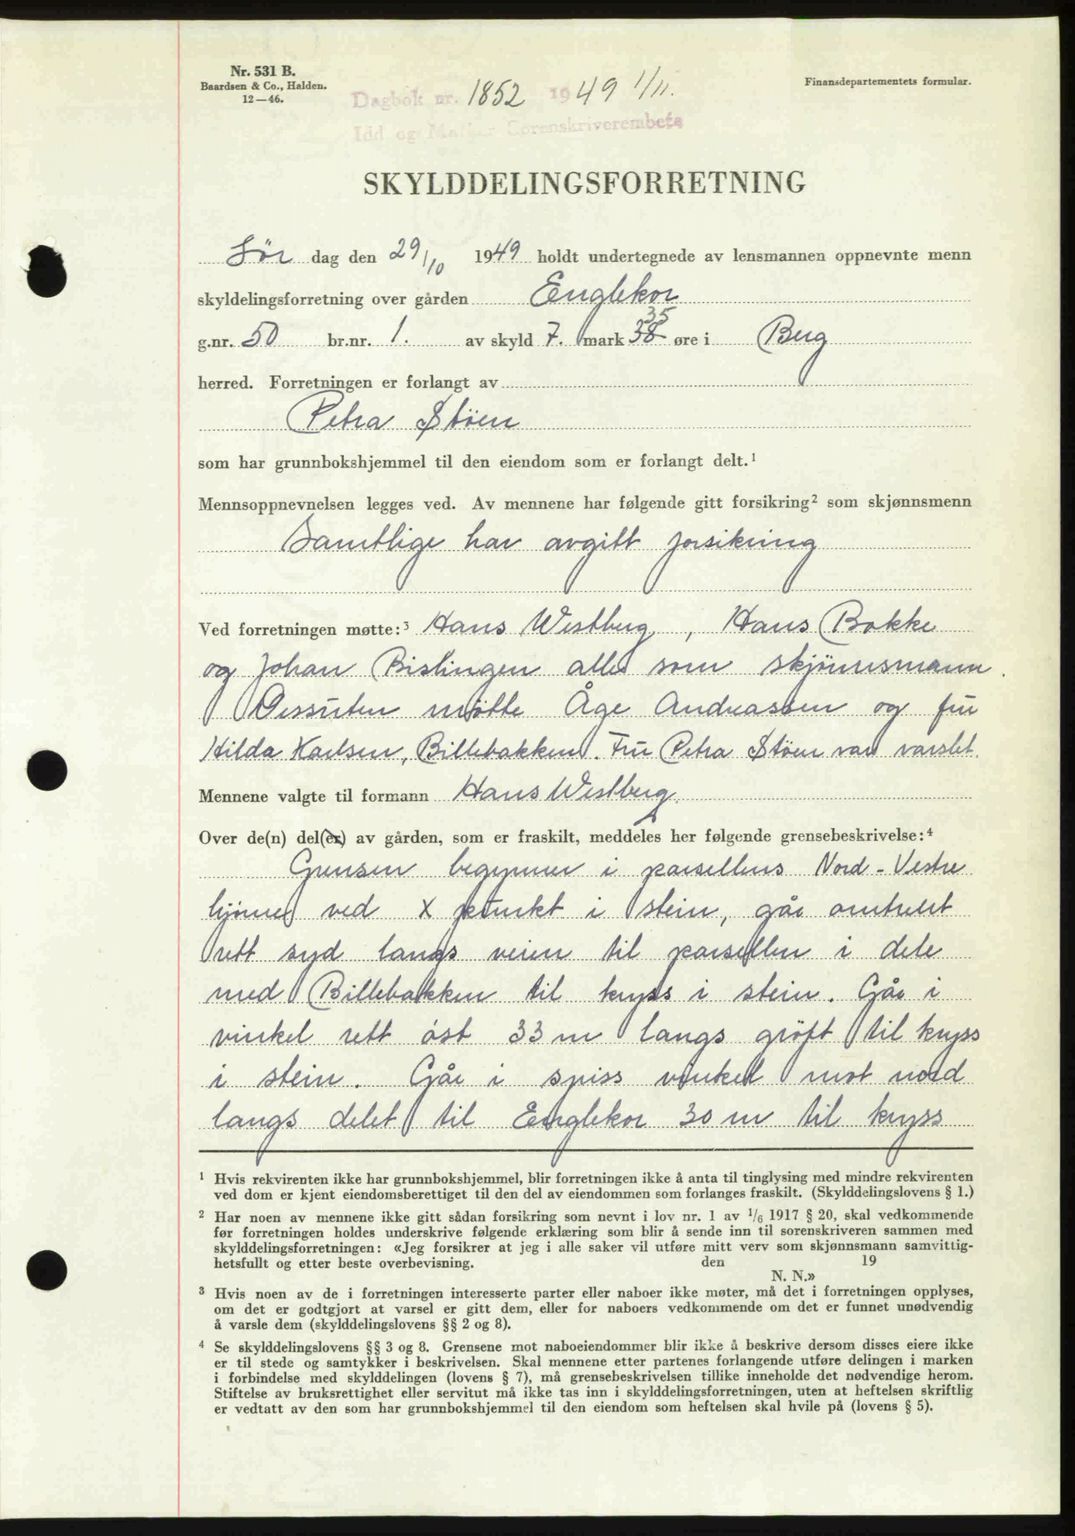 Nr. 531 B.
Baardsen & Co., Halden.
12—46.
Finansdepartementets formular.
Dagbok nr. 1852 1949 1/11.
Idd og Marker Sorenskriverembete
SKYLDDELINGSFORRETNING
Lør dag den 29/10 1949 holdt undertegnede av lensmannen oppnevnte menn
skyldelingsforretning over gården Englekor
g.nr. 50 br.nr. 1. av skyld 7. mark 38 35 øre i Berg
herred. Forretningen er forlangt av
Petra Støen
som har grunnbokshjemmel til den eiendom som er forlangt delt.¹
Mennsoppnevnelsen legges ved. Av mennene har følgende gitt forsikring² som skjønnsmenn
Samtlige har avgitt forsikring
Ved forretningen møtte:³ Hans Westberg, Hans Bakke
og Johan Bislingen alle som skjønnsmann.
Dessuten møtte Åge Andreassen og fru
Hilda Karlsen, Billebakken. Fru Petra Støen var varslet.
Mennene valgte til formann Hans Westberg.
Over de(n) del(er) av gården, som er fraskilt, meddeles her følgende grensebeskrivelse:⁴
Grensen begynner i parsellens Nord-Vestre
hjørne ved x punkt i stein, går omtrent
rett syd langs veien til parsellen i dele
med Billebakken til kryss i stein. Går i
vinkel rett øst 33 m langs grøft til kryss
i stein. Går i spiss vinkel mot nord
langs delet til Englekor 30 m til kryss
¹ Hvis rekvirenten ikke har grunnbokshjemmel, blir forretningen ikke å anta til tinglysing med mindre rekvirenten
ved dom er kjent eiendomsberettiget til den del av eiendommen som forlanges fraskilt. (Skylddelingslovens § 1.)
² Har noen av mennene ikke gitt sådan forsikring som nevnt i lov nr. 1 av 1/6 1917 § 20, skal vedkommende
før forretningen holdes underskrive følgende erklæring som blir å sende inn til sorenskriveren sammen med
skylddelingsforretningen: «Jeg forsikrer at jeg i alle saker vil utføre mitt verv som skjønnsmann samvittig-
hetsfullt og etter beste overbevisning. den 19
N. N.»
³ Hvis noen av de i forretningen interesserte parter eller naboer ikke møter, må det i forretningen opplyses,
om det er godtgjort at varsel er gitt dem, eller for naboers vedkommende om det er funnet unødvendig
å varsle dem (skylddelingslovens §§ 2 og 8).
⁴ Se skylddelingslovens §§ 3 og 8. Grensene mot naboeiendommer blir ikke å beskrive dersom disses eiere ikke
er til stede og samtykker i beskrivelsen. Skal mennene etter partenes forlangende utføre delingen i marken
i forbindelse med skylddelingen (lovens § 7), må grensebeskrivelsen tillike inneholde det nødvendige herom.
Stiftelse av bruksrettighet eller servitut må ikke tas inn i skylddelingsforretningen, uten at heftelsen skriftlig
er vedtatt av den som har grunnbokshjemmel til den eiendom som heftelsen skal hvile på (lovens § 5).